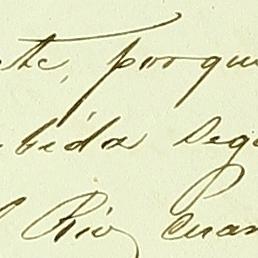 ete, porque
bida seg
Rio, cuan